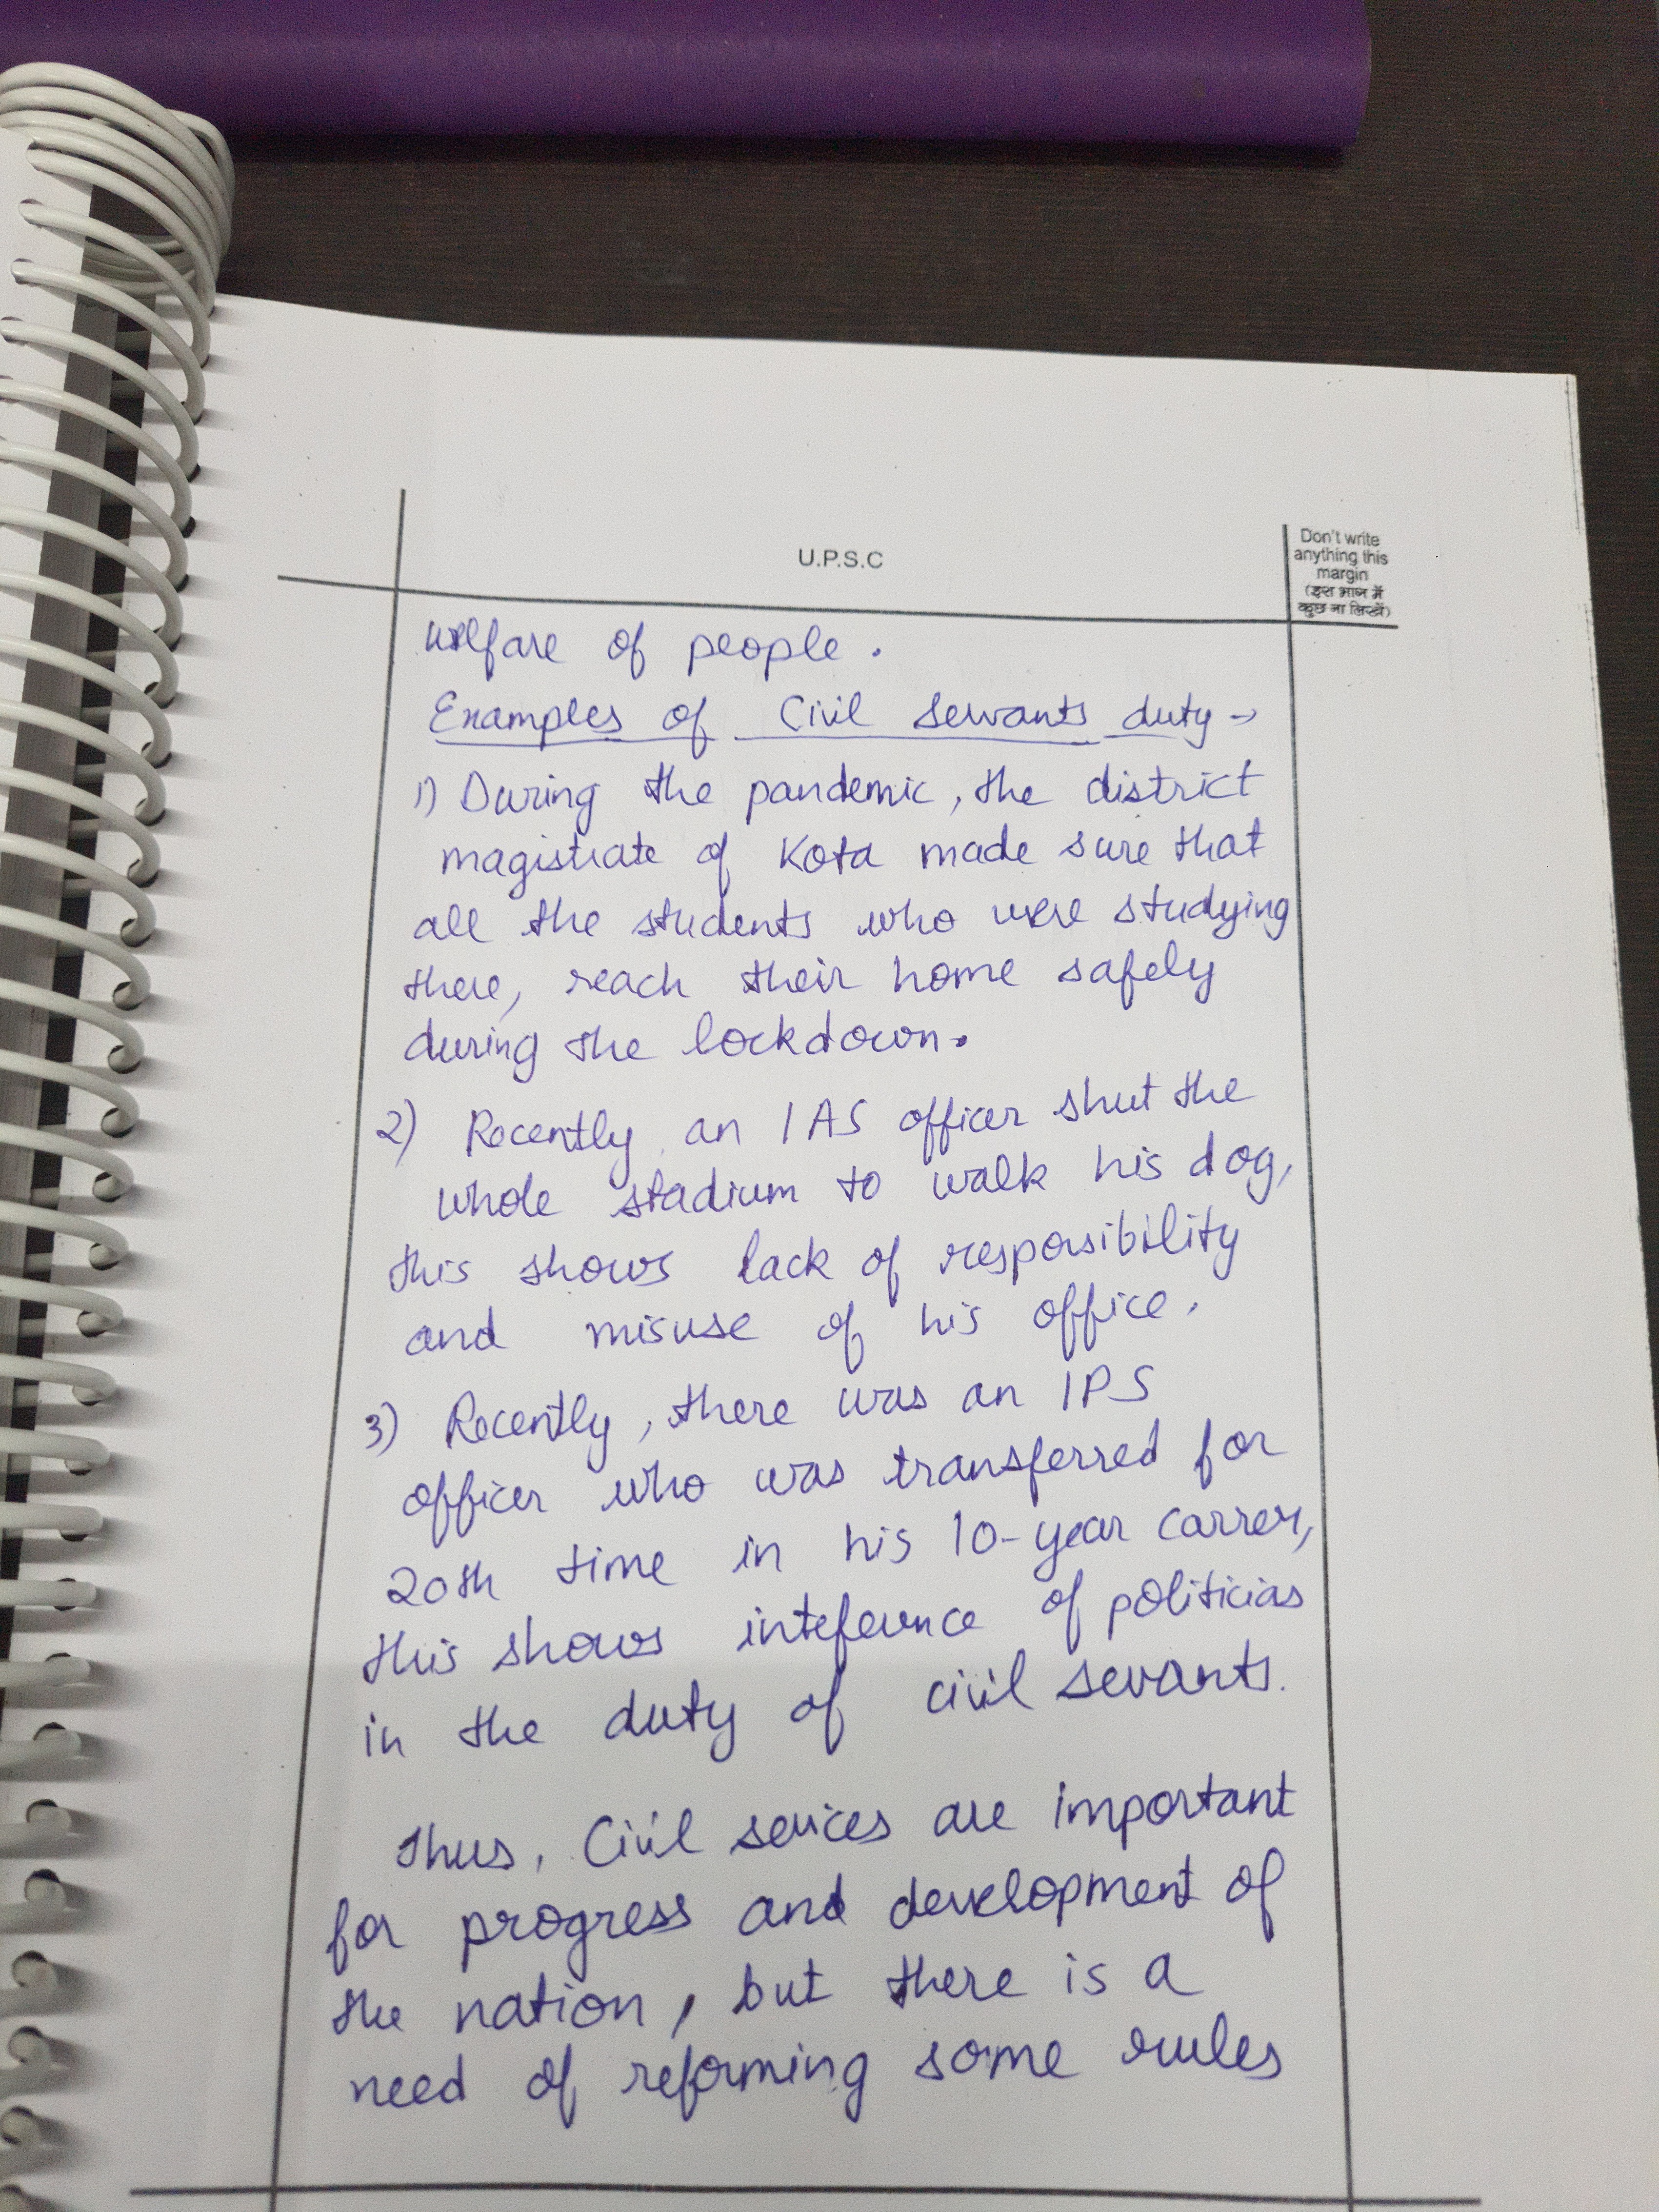 U.P.S.C
Don't write
anything this
margin
(इस भाग में
कुछ ना लिखें)
welfare of people.
Examples of Civil Servants duty →
1) During the pandemic, the district
magistrate of Kota made sure that
all the students who were studying
there, reach their home safely
during the lockdown.
2) Recently, an IAS officer shut the
whole stadium to walk his dog,
this shows lack of responsibility
and misuse of his office.
3) Recently, there was an IPS
officer who was transferred for
20th time in his 10-year carrer,
this shows inteference of politicias
in the duty of civil sevants.
Thus, Civil sevices are important
for progress and development of
the nation, but there is a
need of reforming some rules